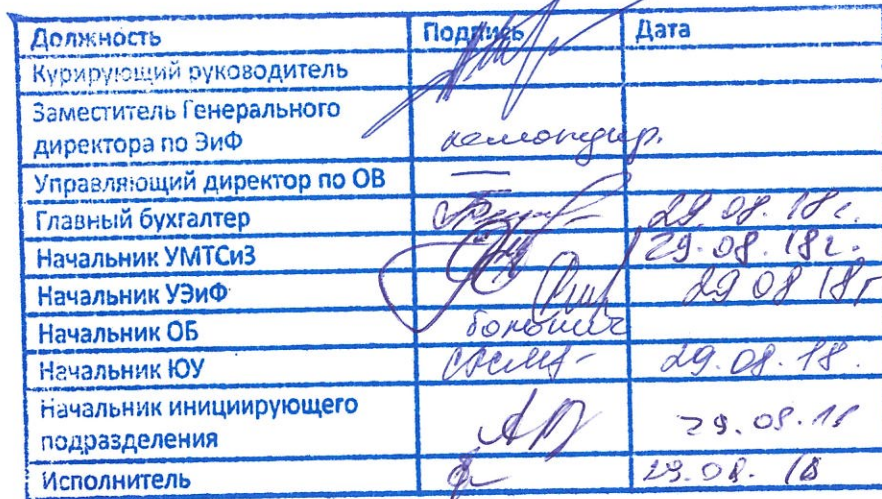 Должность Подпись Дата
Курирующий руководитель
Заместитель Генерального
директора по ЭиФ командир.
Управляющий директор по ОВ —
Главный бухгалтер 29.08.18г.
Начальник УМТСиЗ 29.08.18г.
Начальник УЭиФ 29 08 18г
Начальник ОБ
Начальник ЮУ 29.08.18.
Начальник инициирующего
подразделения 29.08.18
Исполнитель 29.08.18